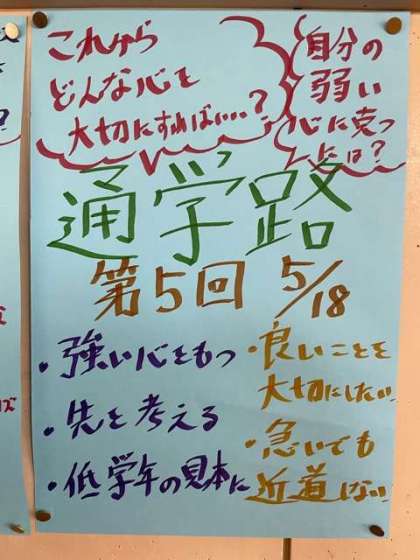 これから
どんな心を
大切にすれば…‥?
自分の
弱い
心に克つ
には?
通学路
第5回 5/18
・強い心をもつ
・先を考える
・低学年の見本に
・良いことを
大切にしたい
・急いでも
近道しない